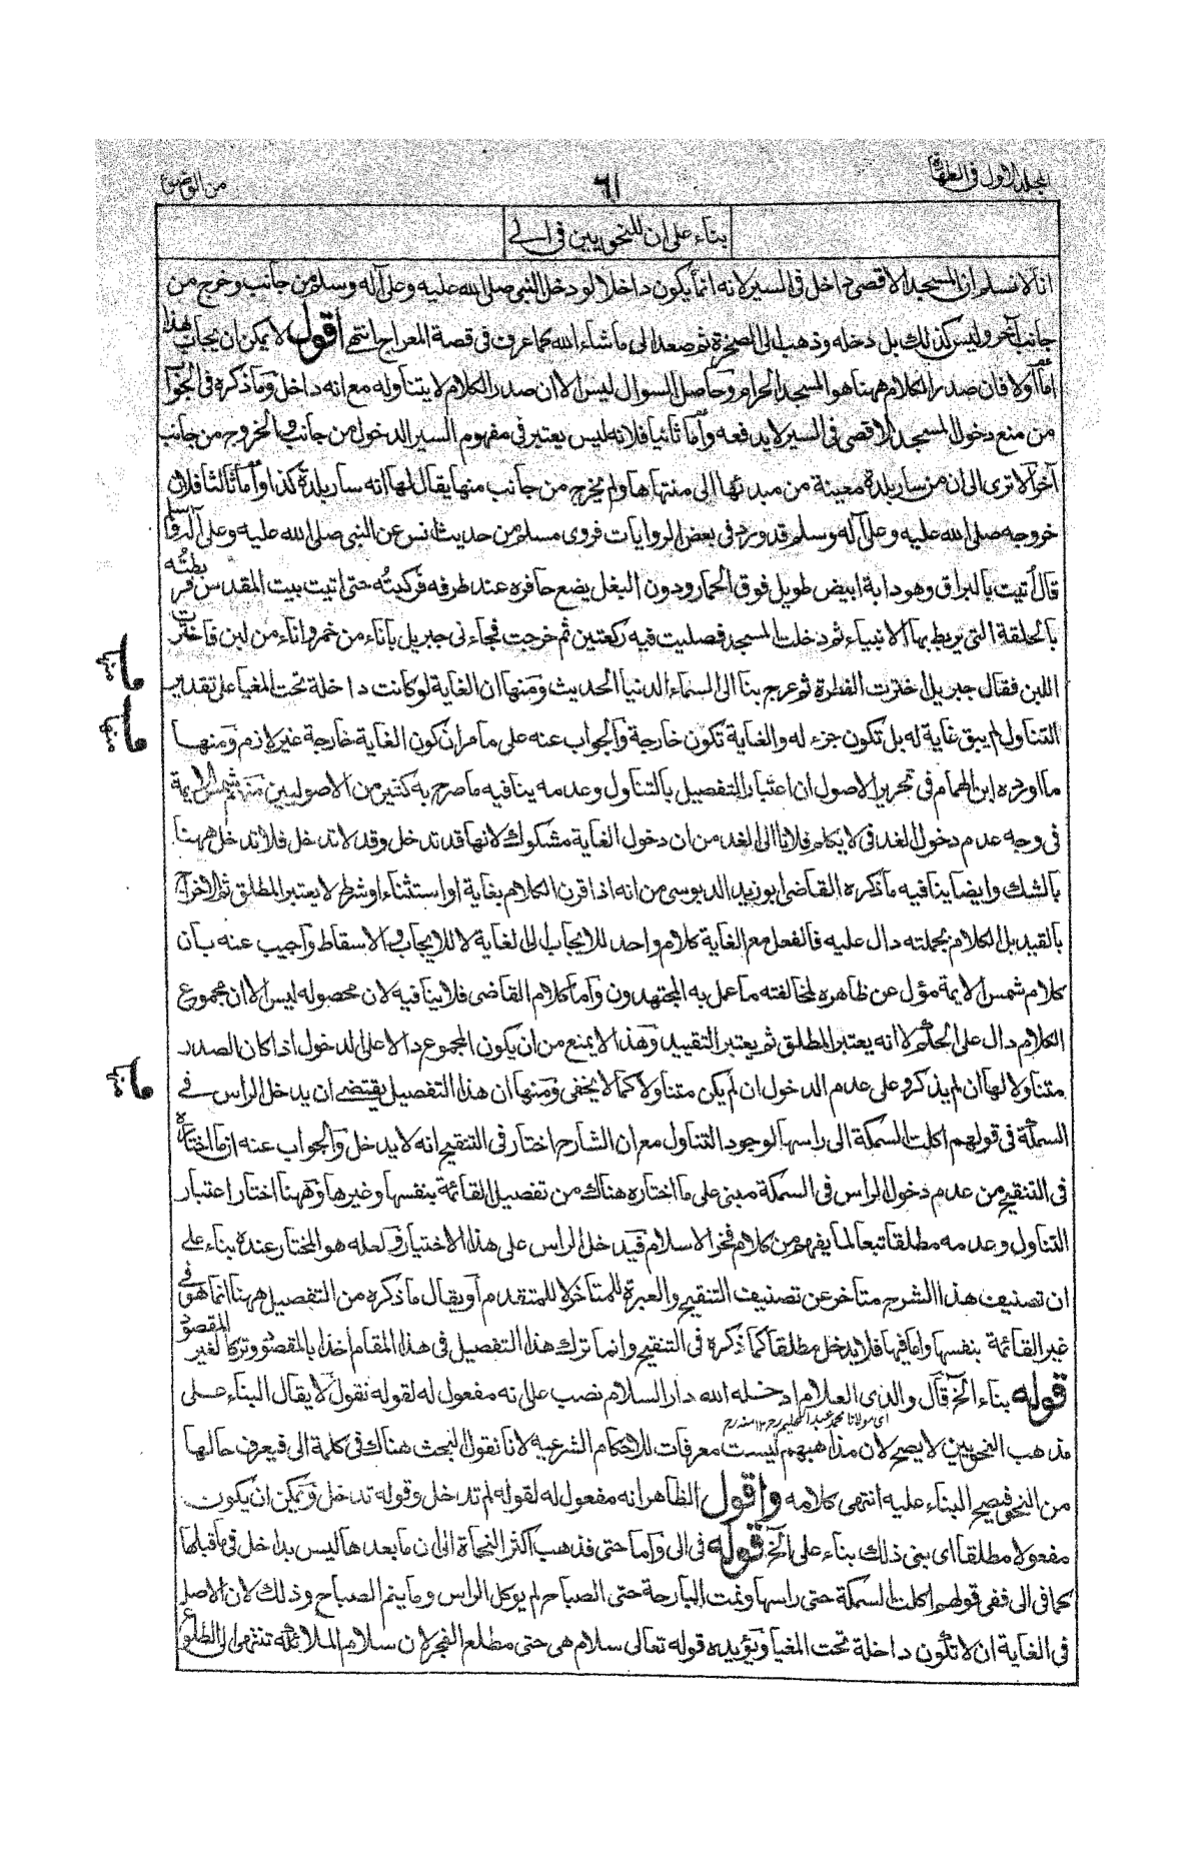 المجلد الاول فى الطهارة
٦١
من الوضوء
بناء على ان للنحويين فى الى
انا لا نسلم ان المسجد الاقصى داخل فى السير لانه انما يكون داخلا لو دخل النبى صلى الله عليه وعلى آله وسلم من جانب وخرج من
جانب آخر وليس كذلك بل دخله وذهب الى الصخرة ثم صعد الى ما شاء الله كما عرف فى قصة المعراج انتهى اقول لا يمكن ان يجاب بهذا
اما اولا فان صدر الكلام ههنا هو المسجد الحرام وحاصل السوال ليس الا ان صدر الكلام لا يتناوله مع انه داخل وما ذكره فى الجواب
من منع دخول المسجد الاقصى فى السير لا يدفعه واما ثانيا فلانه ليس يعتبر فى مفهوم السير الدخول من جانب والخروج من جانب
آخر الا ترى الى ان من سار بلدة معينة من مبدئها الى منتهاها ولم يخرج من جانب منها يقال لها انه سار بلدة كذا واما ثالثا فلان
خروجه صلى الله عليه وعلى آله وسلم قد ورد فى بعض الروايات فروى مسلم من حديث انس عن النبى صلى الله عليه وعلى آله وسلم
قال اتيت بالبراق وهو دابة ابيض طويل فوق الحمار ودون البغل يضع حافره عند طرفه فركبته حتى اتيت بيت المقدس فربطته
بالحلقة التى يربط بها الانبياء ثم دخلت المسجد فصليت فيه ركعتين ثم خرجت فجاءنى جبريل باناء من خمر واناء من لبن فاخترت
اللبن فقال جبريل اخترت الفطرة ثم عرج بنا الى السماء الدنيا الحديث ومنها ان الغاية لو كانت داخلة تحت المغيا على تقدير
التناول لم يبق غاية له بل تكون جزء له والغاية تكون خارجة والجواب عنه على ما مر ان كون الغاية خارجة غير لازم ومنها
ما اورده ابن الهمام فى تحرير الاصول ان اعتبار التفصيل بالتناول وعدمه ينافيه ما صرح به كثير من الاصوليين منهم شمس الايمة
فى وجه عدم دخول الغد فى لا يكلم فلانا الى الغد من ان دخول الغاية مشكوك لانها قد تدخل وقد لا تدخل فلا تدخل ههنا
بالشك وايضا ينافيه ما ذكره القاضى ابو زيد الدبوسى من انه اذا قرن الكلام بغاية او استثناء او شرط لا يعتبر المطلق ثم الاخراج
بالقيد بل الكلام بجملته دال عليه فالفعل مع الغاية كلام واحد للايجاب الى الغاية لا للايجاب والاسقاط واجيب عنه بان
كلام شمس الايمة مؤل عن ظاهره لمخالفته ما عمل به المجتهدون واما كلام القاضى فلا ينافيه لان محصوله ليس الا ان مجموع
الكلام دال على الحكم لا انه يعتبر المطلق ثم يعتبر التقييد وهذا لا يمنع من ان يكون المجموع دالا على الدخول اذا كان الصدر
متناولا لها ان لم يذكر وعلى عدم الدخول ان لم يكن متناولا كما لا يخفى ومنها ان هذا التفصيل يقتضى ان يدخل الراس فى
السمكة فى قولهم اكلت السمكة الى راسها لوجود التناول مع ان الشارح اختار فى التنقيح انه لا يدخل والجواب عنه ان ما اختاره
فى التنقيح من عدم دخول الراس فى السمكة مبنى على ما اختاره هناك من تفصيل القائمة بنفسها وغيرها وههنا اختار اعتبار
التناول وعدمه مطلقا تبعا لما يفهم من كلام فخر الاسلام فيدخل الراس على هذا الاختيار ولعله هو المختار عنده بناء على
ان تصنيف هذا الشرح متاخر عن تصنيف التنقيح والعبرة للمتاخر لا للمتقدم او يقال ما ذكره من التفصيل ههنا انما هو فى
غير القائمة بنفسها واما فيها فلا يدخل مطلقا كما ذكره فى التنقيح وانما ترك هذا التفصيل فى هذا المقام اخذا بالمقصود وتركا لغير المقصود
قوله بناء الخ قال والدى العلام ادخله الله دار السلام نصب على انه مفعول له لقوله نقول لا يقال البناء على
اى مولانا محمد عبد الحليم رح ١٢ منه رح
مذهب النحويين لا يصح لان مذاهبهم ليست معرفات للاحكام الشرعية لانا نقول البحث هناك فى كلمة الى فيعرف حالها
من النحو فيصح البناء عليه انتهى كلامه واقول الظاهر انه مفعول له لقوله لم تدخل وقوله تدخل ويمكن ان يكون
مفعولا مطلقا اى بنى ذلك بناء على الخ قوله فى الى واما حتى فذهب اكثر النحاة الى ان ما بعدها ليس بداخل فى ما قبلها
كما فى الى ففى قولهم اكلت السمكة حتى راسها ونمت البارحة حتى الصباح لم يوكل الراس وما ينم الصباح وذلك لان الاصل
فى الغاية ان لا تكون داخلة تحت المغيا ويؤيده قوله تعالى سلام هى حتى مطلع الفجر لان سلام الملائكة تنتهى الى الطلوع
ومنها
ومنها
ومنها